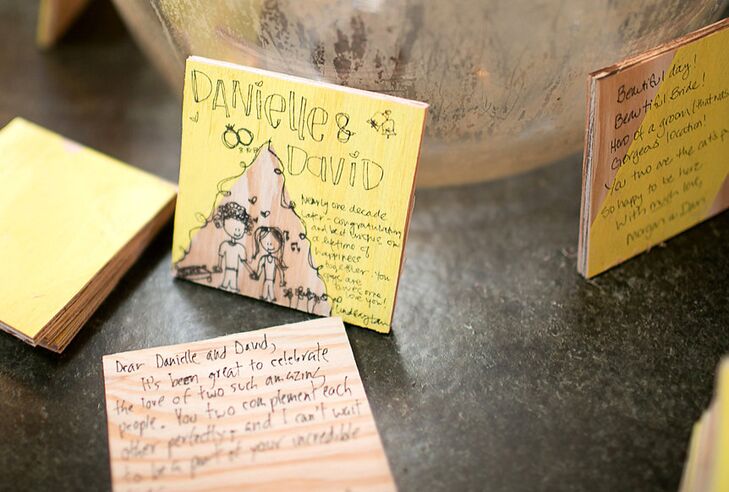 DANielle &
DAVID
Nearly one decade
later - congratulations
and best wishes on
a lifetime of
happiness
together. You
guys are
awesome
Dear Danielle and David,
It's been great to celebrate
the love of two such amazing
people. You two complement each
other perfectly, and I can't wait
to be a part of your incredible
Beautiful day!
Beautiful Bride!
Hero of a groom (that
Gorgeous location!
You two are the cat's
So happy to be here
With much love,
Morgan & Dan